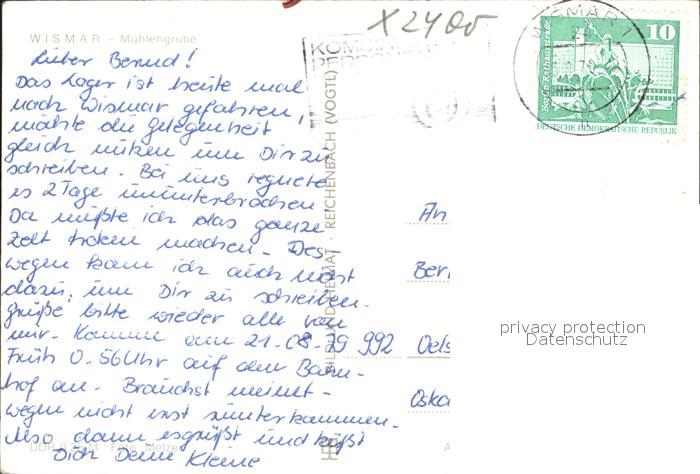 WISMAR – Mühlengrube
X2400
Lieber Bernd!
Das Lager ist heute mal
nach Wismar gefahren,
möchte die Gelegenheit
gleich nutzen um Dir zu
schreiben. Bei uns regnete
es 2 Tage ununterbrochen
Da mußte ich das ganze
Zelt trocken machen. Des-
wegen kam ich auch nicht
dazu, um Dir zu schreiben.
grüße bitte wieder alle von
mir. Komme am 21.08.
Früh 0.56 Uhr auf dem Bahn-
hof an. Brauchst meinet-
wegen nicht erst runterkommen.
Also dann es grüßt und küßt
Dich Deine Kleine
BILD UND HEIMAT · REICHENBACH (VOGTL)
WISMAR 1
10
Berlin, Rathausstraße
DEUTSCHE DEMOKRATISCHE REPUBLIK
An
Ber
Oels
Oska
privacy protection
Datenschutz
DDR
Foto: Melzer